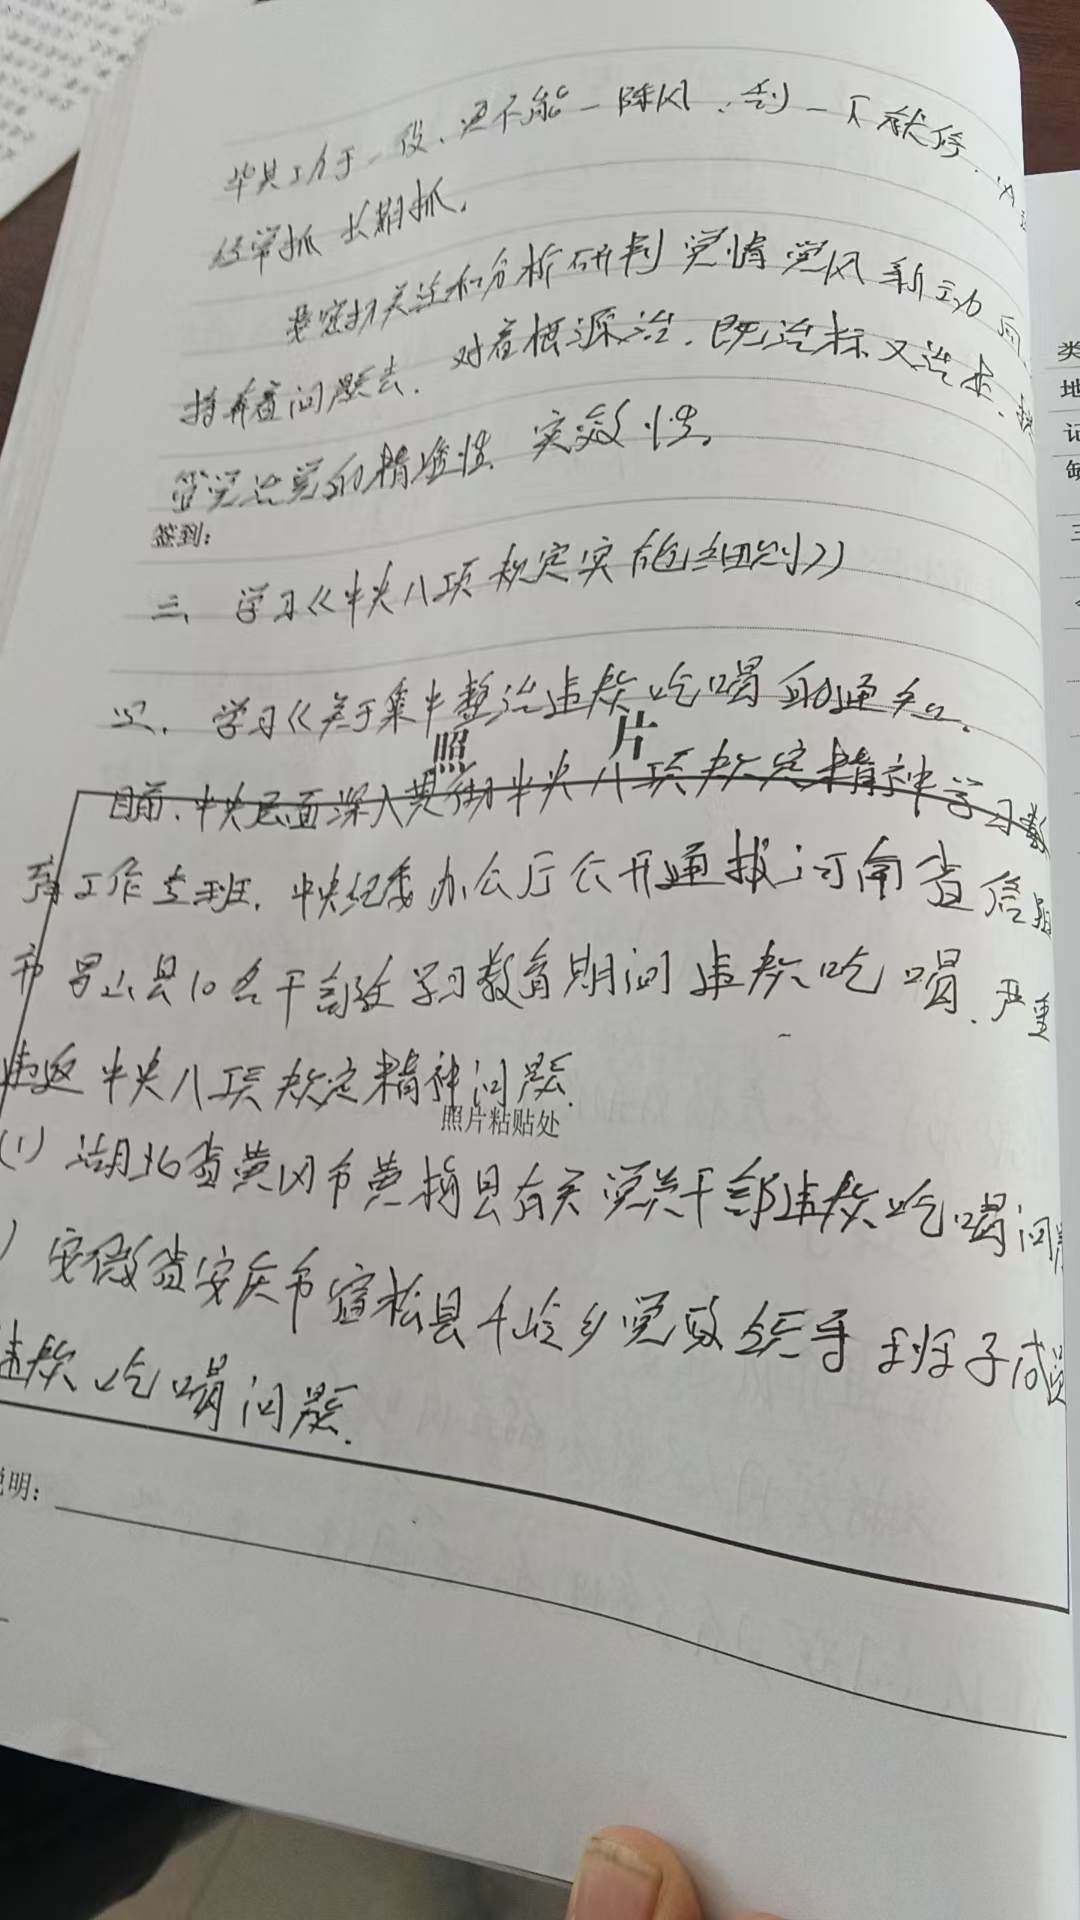 毕其功于一役、更不能一阵风、刮一下就停,
经常抓 长期抓。
要密切关注和分析研判 党情 党风 新动向,
持奔着问题去. 对着根源治. 既治标又治本、
管党治党的精准性、实效性。
签到:
三、学习《中央八项规定实施细则》
四、学习《关于集中整治违规吃喝的通知.
照 片
目前、中央层面深入贯彻中央八项规定精神学习教
育工作专班. 中央纪委办公厅公开通报河南省信阳
市罗山县10名干部在学习教育期间违规吃喝、严重
违反中央八项规定精神问题.
照片粘贴处
(1) 湖北省黄冈市黄梅县有关党员干部违规吃喝问题
) 安徽省安庆市宿松县千岭乡党政领导班子成员
违规吃喝问题.
说明:
类
地
记